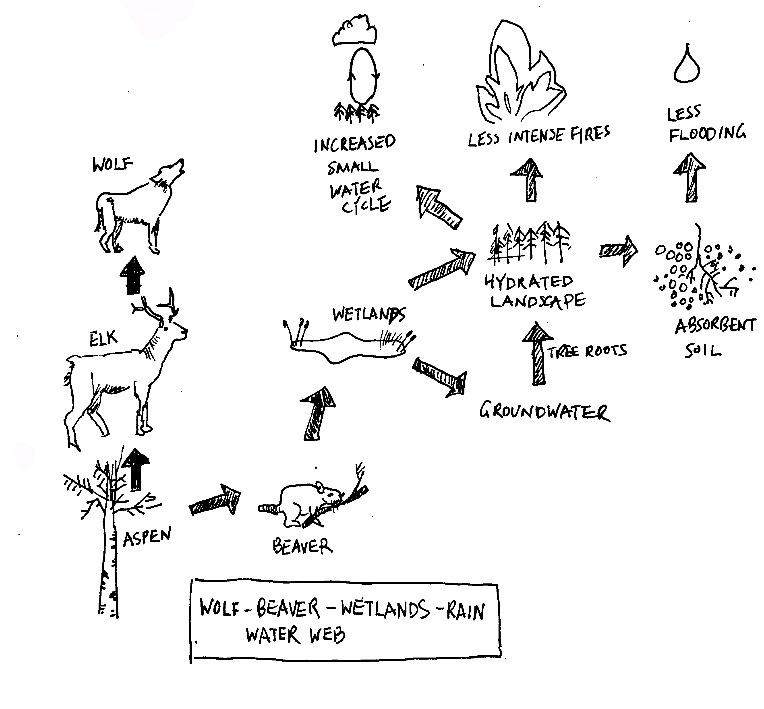 INCREASED
SMALL
WATER
CYCLE
LESS INTENSE FIRES
LESS
FLOODING
WOLF
HYDRATED
LANDSCAPE
WETLANDS
ABSORBENT
SOIL
ELK
TREE ROOTS
GROUNDWATER
ASPEN
BEAVER
WOLF-BEAVER-WETLANDS-RAIN
WATER WEB